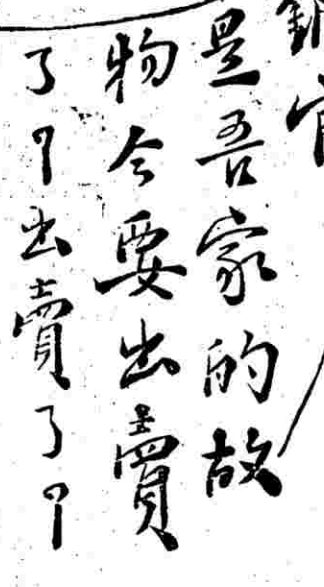 是吾家的故
物今要出賣
了出賣了